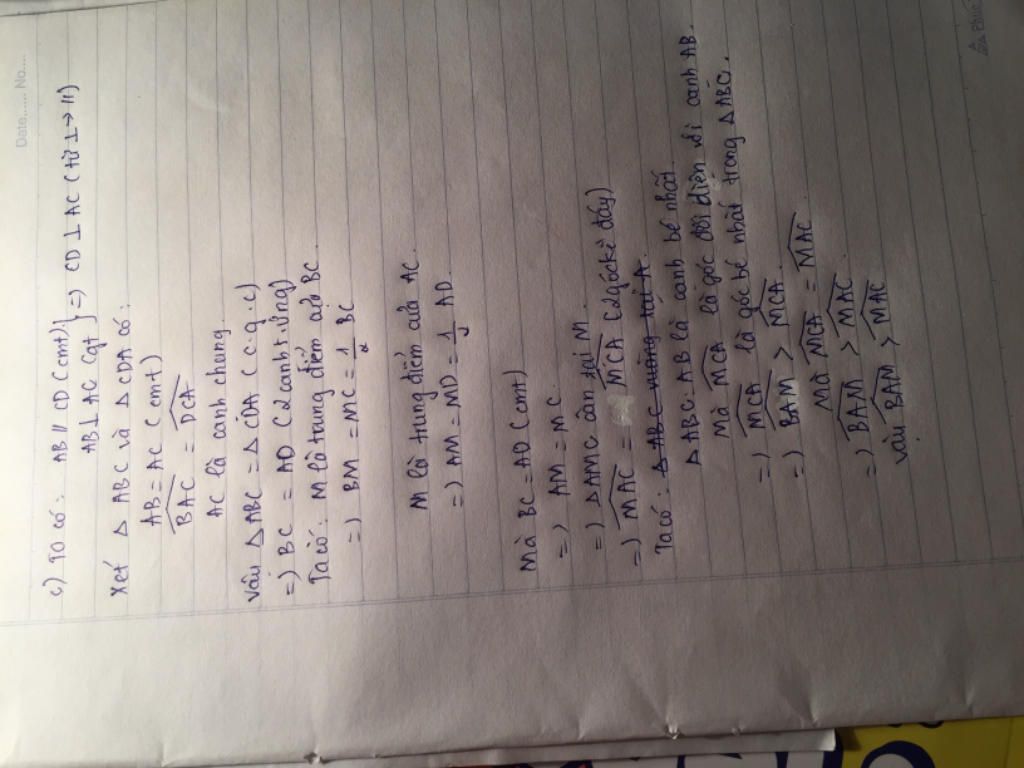 Date....... No....
c) Ta có: AB // CD (cmt)
AB ⊥ AC (gt } => CD ⊥ AC (từ ⊥ → //)
Xét △ ABC và △ CDA có:
AB = AC (cmt)
BAC = DCA
AC là cạnh chung
vậy △ ABC = △ CDA (c.g.c)
=) BC = AD (2 cạnh t.ứng)
Ta có: M là trung điểm của BC.
=) BM = MC = 1/2 BC
M là trung điểm của AC.
=) AM = MD = 1/2 AD.
Mà BC = AD (cmt)
=) AM = MC.
=) △ AMC cân tại M.
=) MAC = MCA (2 góc kề đáy)
Ta có: △ ABC vuông tại A.
△ ABC. AB là cạnh bé nhất
Mà MCA là góc đối diện với cạnh AB.
=) MCA là góc bé nhất trong △ ABC.
=) BAM > MCA.
Mà MCA = MAC
=) BAM > MAC
vậy BAM > MAC